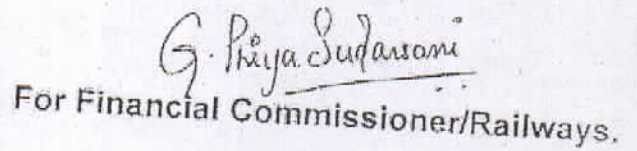 G. Priya Sudarsani
For Financial Commissioner/Railways.